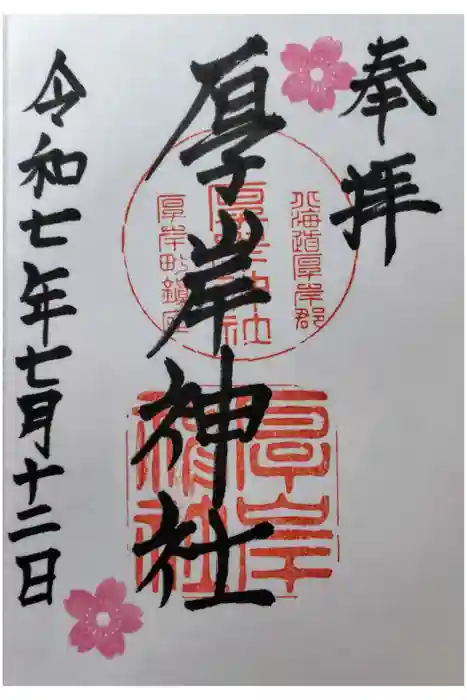 奉拝
北海道厚岸郡
厚岸神社
厚岸町鎮座
厚岸神社
厚岸神社
令和七年七月十二日